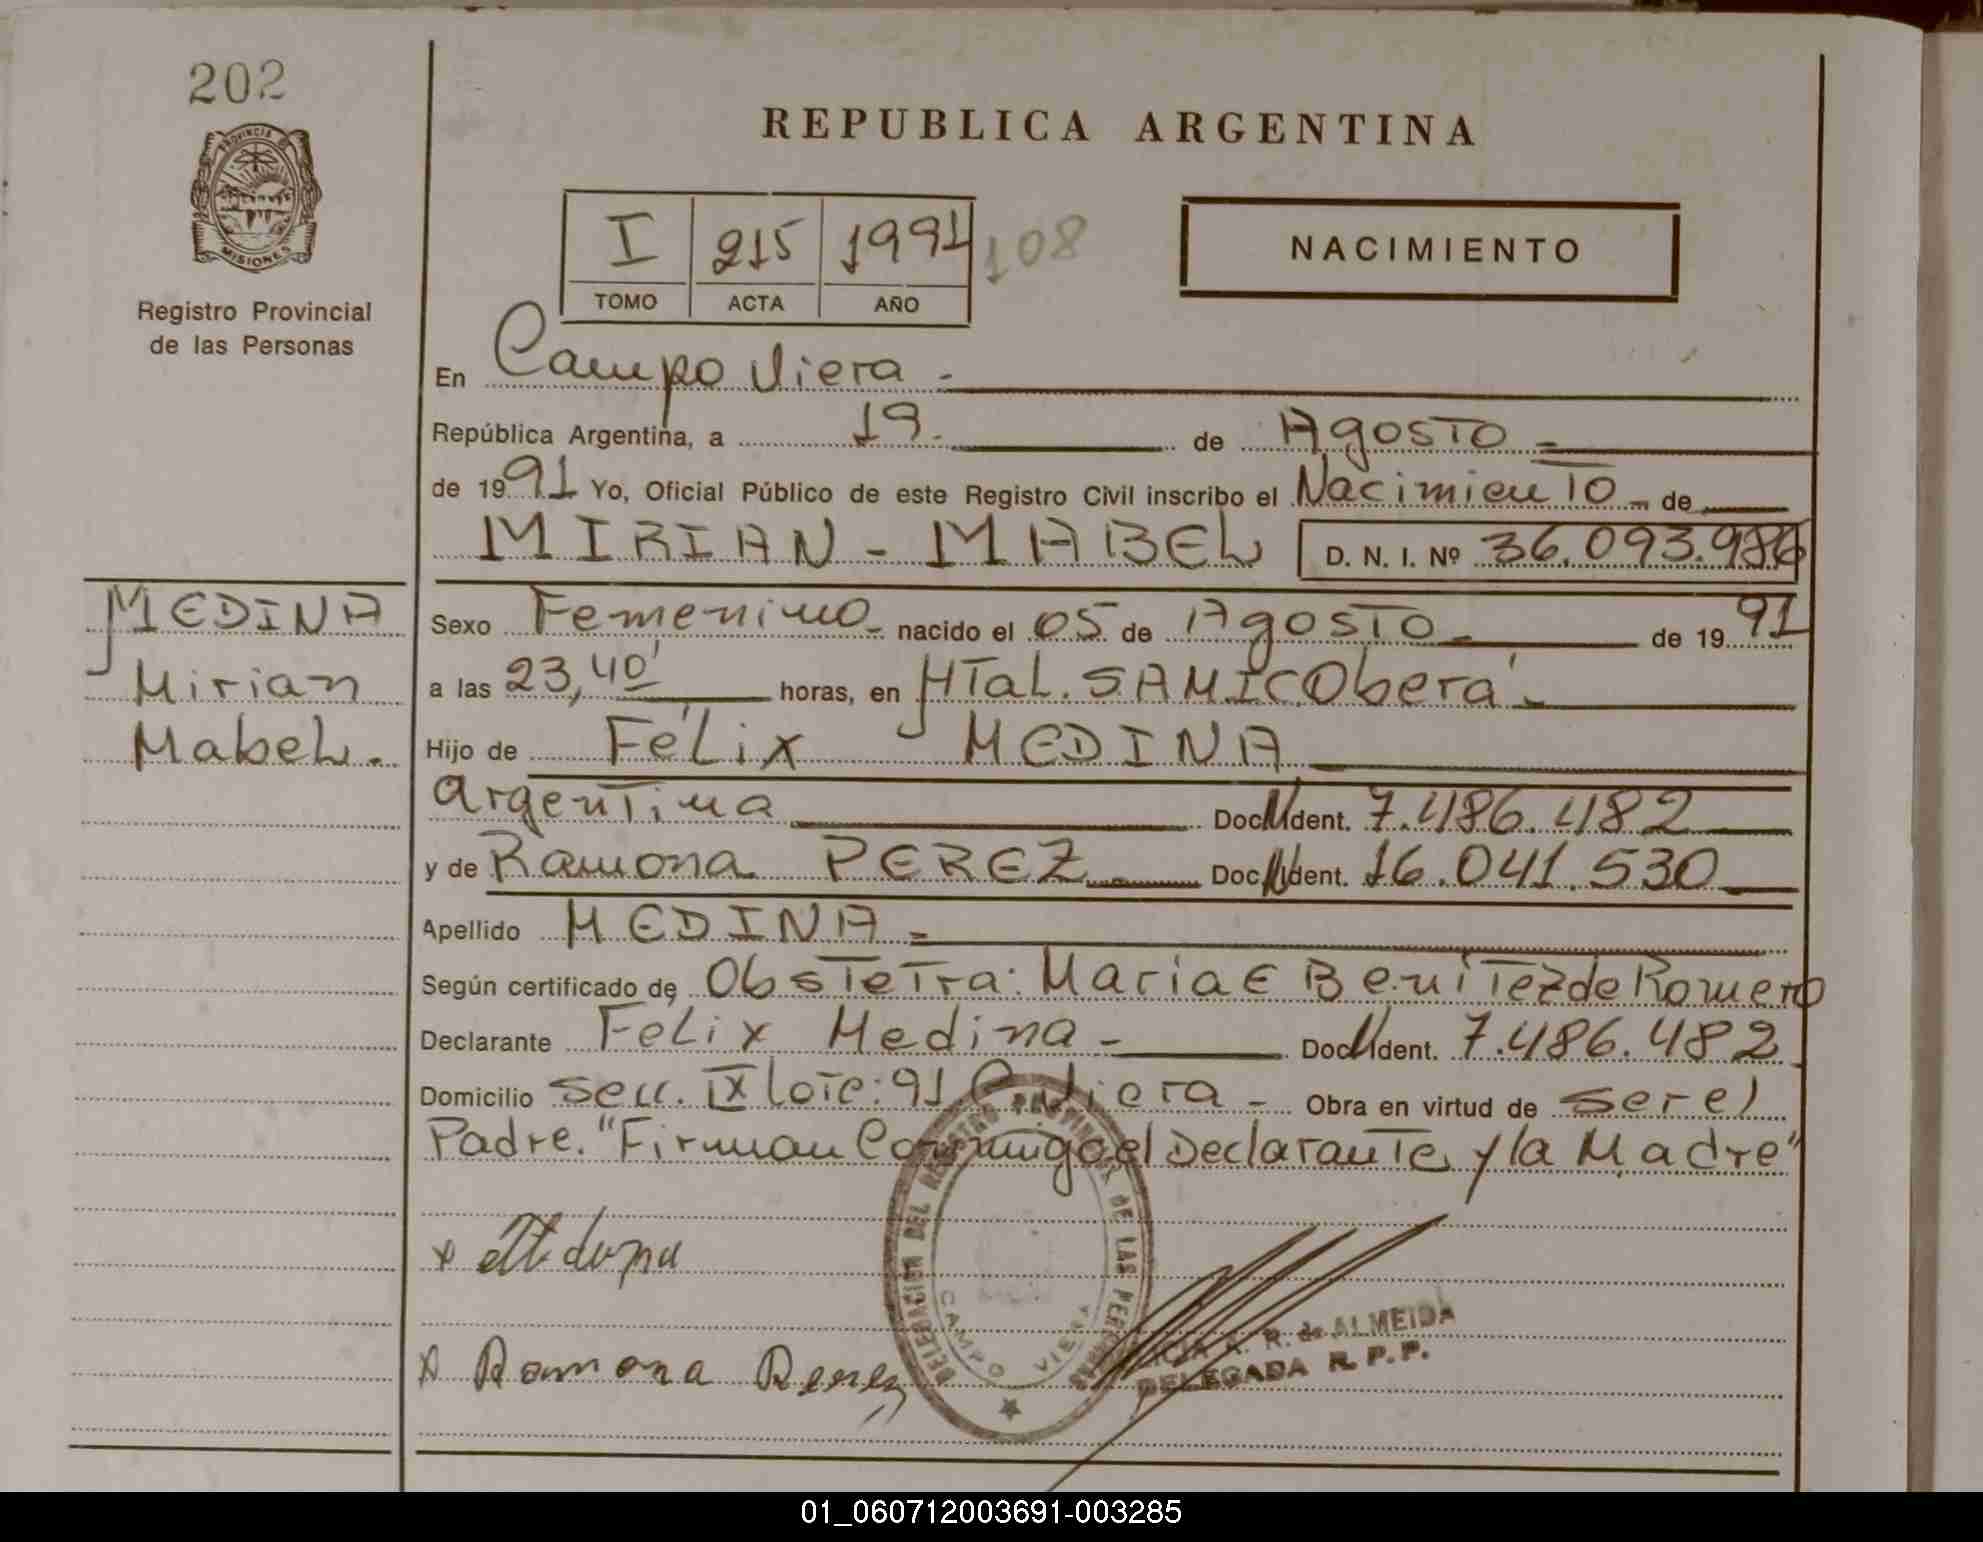 202
PROVINCIA DE
MISIONES
Registro Provincial
de las Personas
REPUBLICA ARGENTINA
I 215 1991 108
TOMO ACTA AÑO
NACIMIENTO
En Campo Viera -
República Argentina, a 19. de Agosto =
de 1991 Yo, Oficial Público de este Registro Civil inscribo el Nacimiento - de
MIRIAN - MABEL D. N. I. Nº 36.093.986
MEDINA
Mirian
Mabel.
Sexo Femenino - nacido el 05 de Agosto - de 1991
a las 23,40' horas, en HTal. SAMIC Oberá -
Hijo de Félix MEDINA
Argentina Doc. Ident. 7.486.482
y de Ramona PEREZ - Doc. Ident. 16.041.530
Apellido MEDINA =
Según certificado de Obstetra: Maria E Benitez de Romero
Declarante Félix Medina - Doc. Ident. 7.486.482
Domicilio Secc. IX lote: 91 C. Viera - Obra en virtud de ser el
Padre. "Firman Conmigo el Declarante y la Madre"
DELEGACION DEL REGISTRO PROVINCIAL DE LAS PERSONAS
CAMPO VIERA
x Medina
x Ramona Perez
R. de ALMEIDA
DELEGADA R. P. P.
01_060712003691-003285